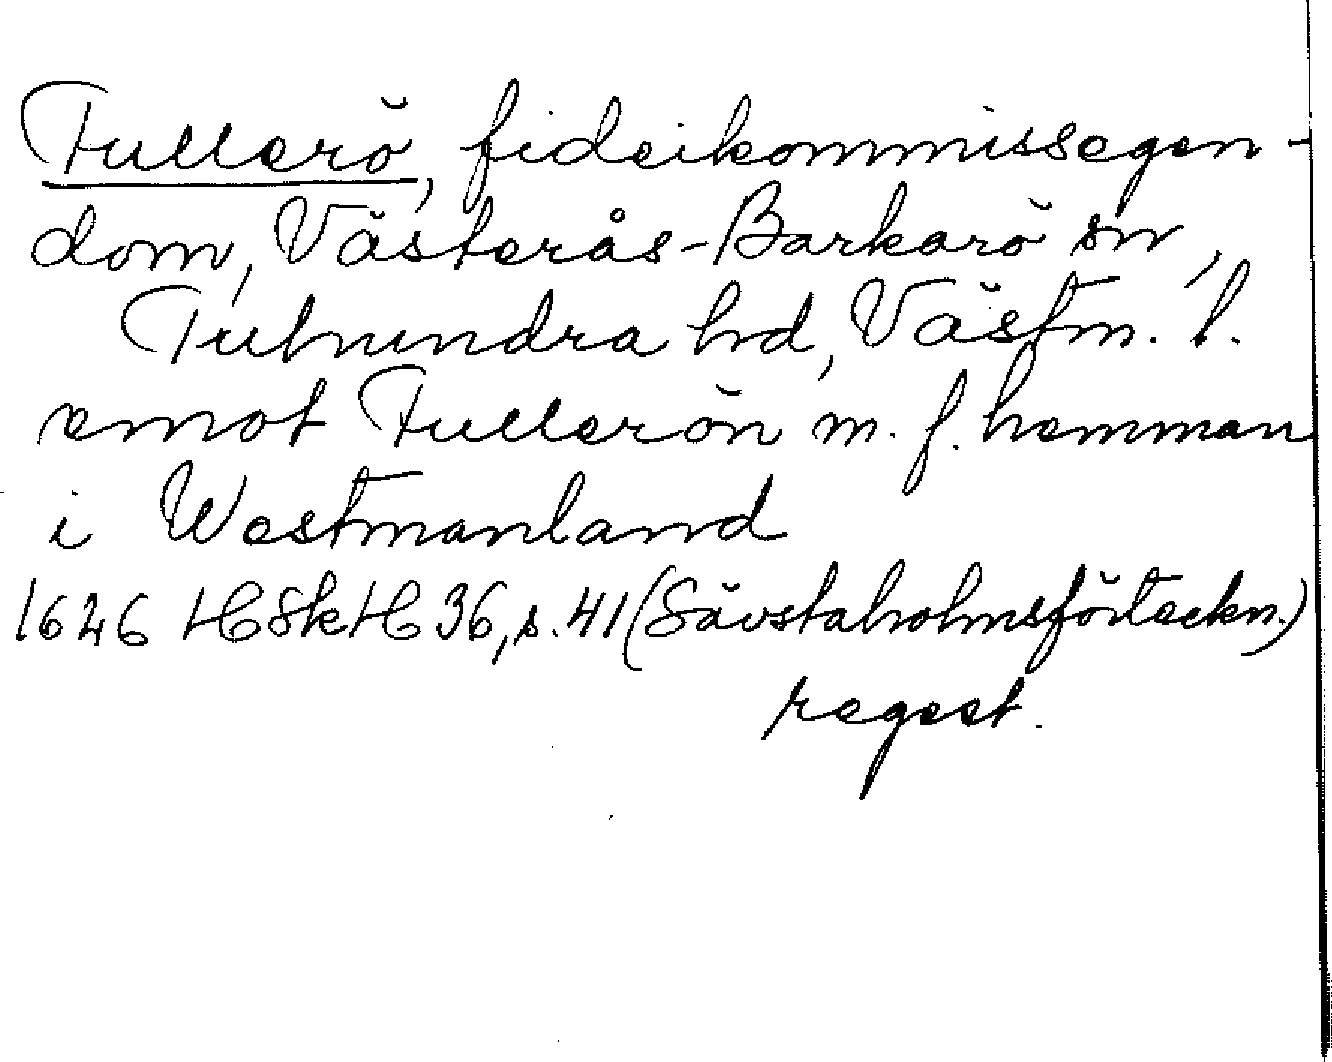 Fullerö, fideikommissegen-
dom, Västerås-Barkarö sn,
Tuhundra hd, Västm. l.
emot Fullerön m. fl. hemman
i Westmanland
1646 HSkH 36, s. 41 (Sävstaholmsförteckn.)
regest.